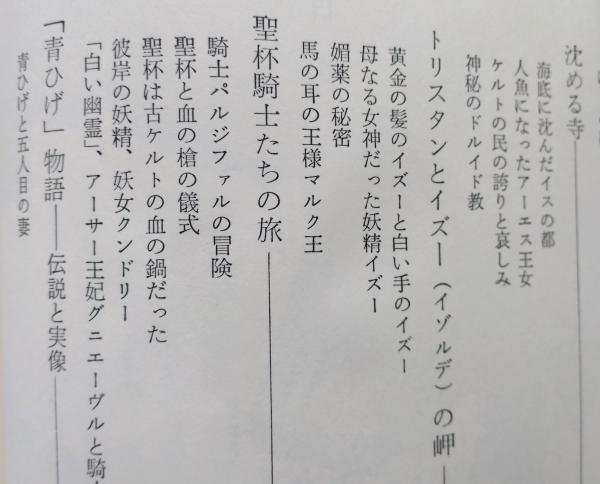 沈める寺
海底に沈んだイスの都
人魚になったアーエス王女
ケルトの民の誇りと哀しみ
神秘のドルイド教
トリスタンとイズー（イゾルデ）の岬
黄金の髪のイズーと白い手のイズー
母なる女神だった妖精イズー
媚薬の秘密
馬の耳の王様マルク王
聖杯騎士たちの旅
騎士パルジファルの冒険
聖杯と血の槍の儀式
聖杯は古ケルトの血の鍋だった
彼岸の妖精、妖女クンドリー
「白い幽霊」、アーサー王妃グニエーヴルと騎
「青ひげ」物語――伝説と実像
青ひげと五人目の妻